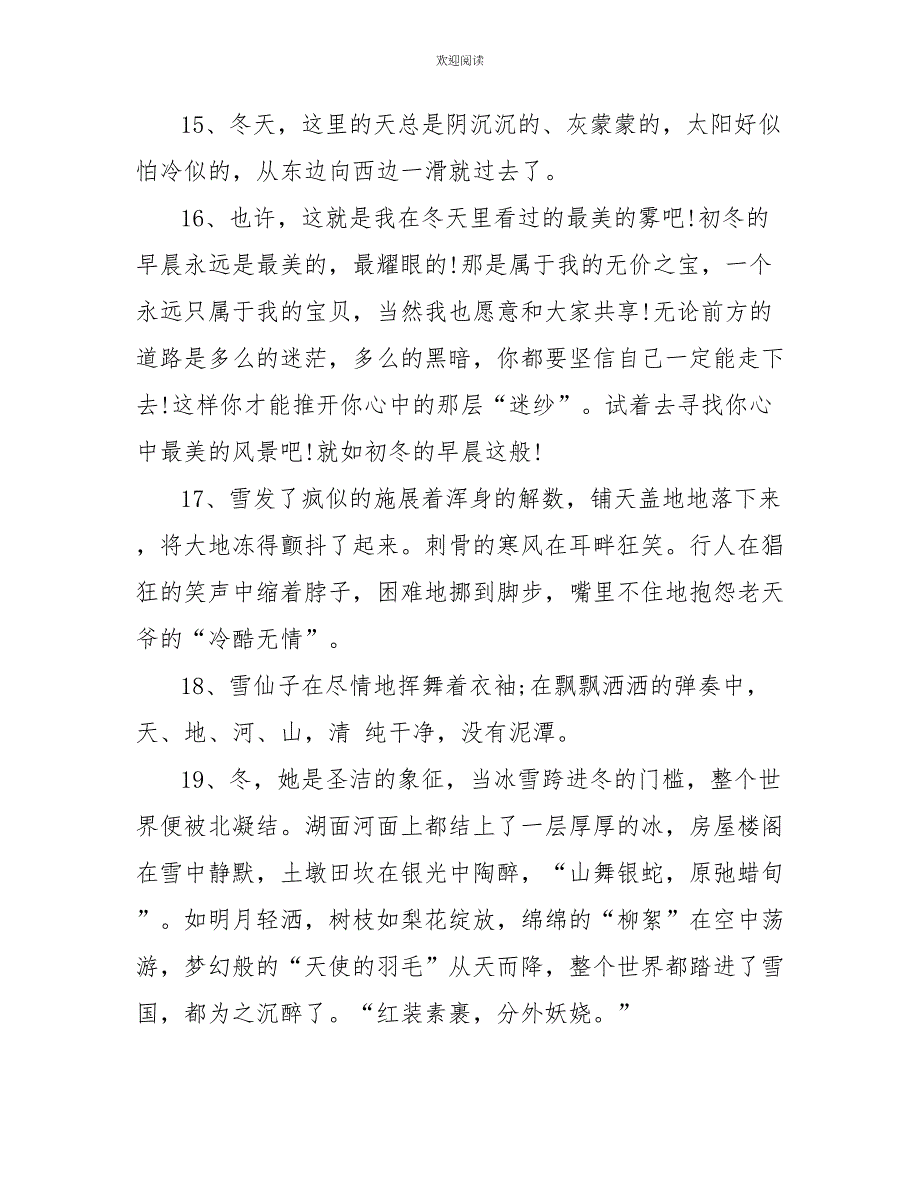 欢迎阅读
15、冬天，这里的天总是阴沉沉的、灰蒙蒙的，太阳好似
怕冷似的，从东边向西边一滑就过去了。
16、也许，这就是我在冬天里看过的最美的雾吧!初冬的
早晨永远是最美的，最耀眼的!那是属于我的无价之宝，一个
永远只属于我的宝贝，当然我也愿意和大家共享!无论前方的
道路是多么的迷茫，多么的黑暗，你都要坚信自己一定能走下
去!这样你才能推开你心中的那层“迷纱”。试着去寻找你心
中最美的风景吧!就如初冬的早晨这般!
17、雪发了疯似的施展着浑身的解数，铺天盖地地落下来
，将大地冻得颤抖了起来。刺骨的寒风在耳畔狂笑。行人在猖
狂的笑声中缩着脖子，困难地挪到脚步，嘴里不住地抱怨老天
爷的“冷酷无情”。
18、雪仙子在尽情地挥舞着衣袖;在飘飘洒洒的弹奏中，
天、地、河、山，清 纯干净，没有泥潭。
19、冬，她是圣洁的象征，当冰雪跨进冬的门槛，整个世
界便被北凝结。湖面河面上都结上了一层厚厚的冰，房屋楼阁
在雪中静默，土墩田坎在银光中陶醉，“山舞银蛇，原弛蜡旬
”。如明月轻洒，树枝如梨花绽放，绵绵的“柳絮”在空中荡
游，梦幻般的“天使的羽毛”从天而降，整个世界都踏进了雪
国，都为之沉醉了。“红装素裹，分外妖娆。”